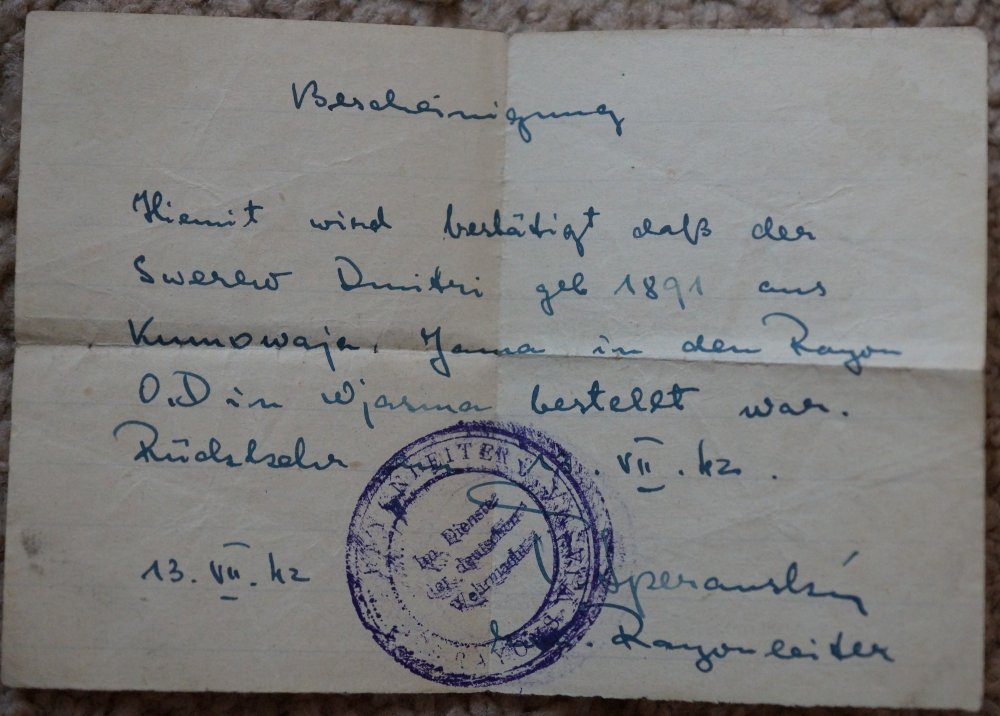 Bescheinigung
Hiemit wird bestätigt daß der
Swerew Dmitri geb 1891 aus
Kunowaja. Jama in den Rayon
O.D in Wjasma bestellt war.
Rückkehr 13. VII. 42.
13. VII. 42
Im Dienste
der deutschen
Wehrmacht
Speranskij
Rayonleiter